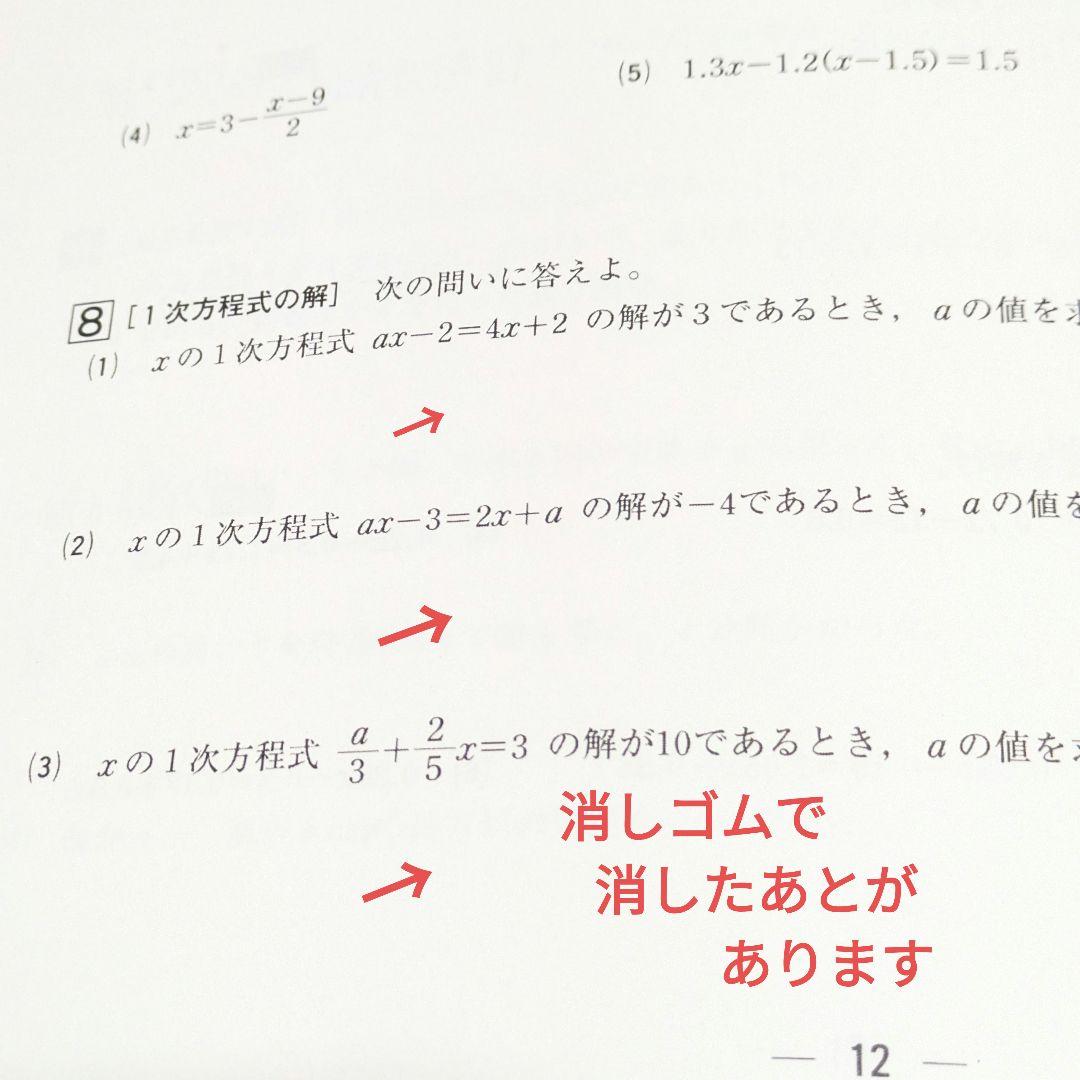 (5) 1.3x−1.2(x−1.5)=1.5
(4) x=3−\frac{x−9}{2}
8 [1次方程式の解] 次の問いに答えよ。
(1) xの1次方程式 ax−2=4x+2 の解が3であるとき，aの値を
(2) xの1次方程式 ax−3=2x+a の解が−4であるとき，aの値を
(3) xの1次方程式 \frac{a}{3}+\frac{2}{5}x=3 の解が10であるとき，aの値を
消しゴムで
消したあとが
あります
— 12 —